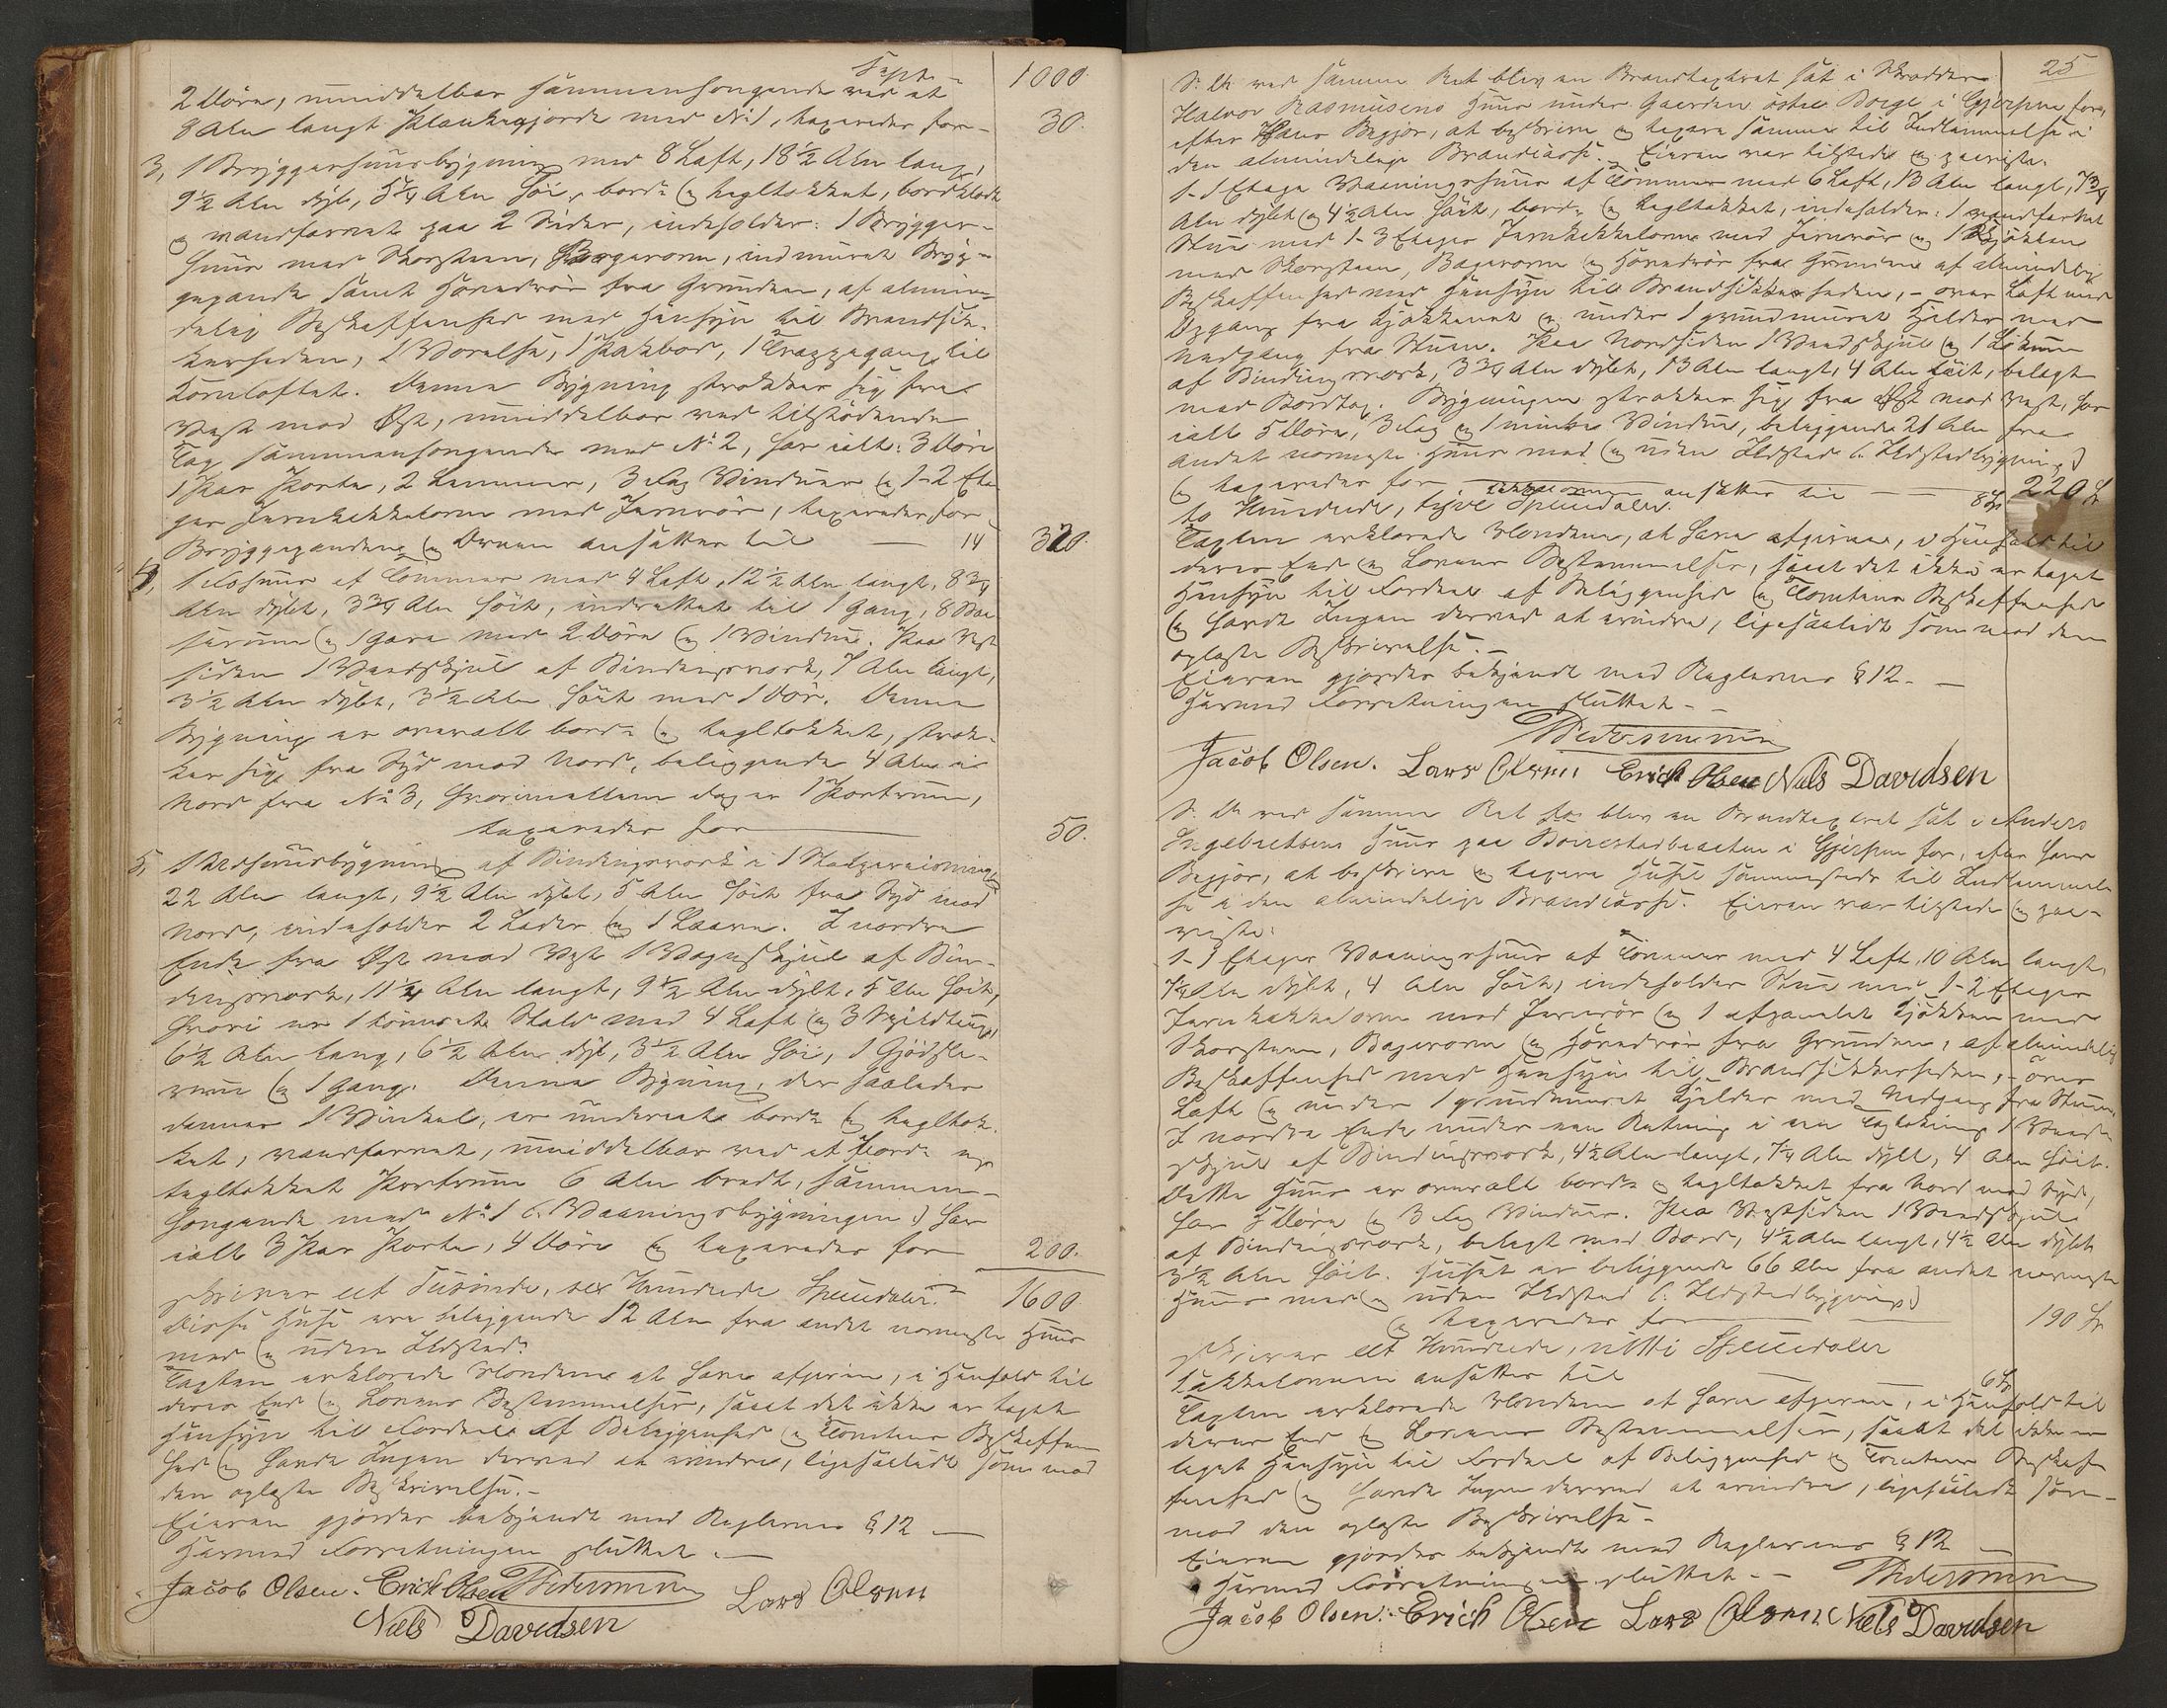 Transp. 1000
2 Döre, umiddelbar sammenhængende ved et
8 Alen langt Plankegjerde med No 1, taxeredes for – 30.
3, 1 Bryggerhuusbygning med 8 Laft, 18 1/2 Alen lang,
9 1/2 Alen dyb, 5 3/4 Alen höi, bord- og tegltækket, bordklædt
og vandfarvet paa 2 Sider, indeholder: 1 Brygger-
huus med Skorsteen, Bagerovn, indmuret Bryg-
gepande samt Hörnerör fra Grunden, af almin-
delig Beskaffenhed med Hensyn til Brandsik-
kerheden, 1 Vorelse, 1 Pakbod, 1 Trappegang til
Kornloftet. Denne Bygning strækker sig fra
Vest mod Öst, umiddelbar ved tilstödende
Tag sammenhængende med No 2, har ialt: 3 Döre
1 Par Porte, 2 Lemmer, 3 Fag Vinduer og 1-2 Eta-
ges Jernkakkelovn med Jernrör, taxeredes for
Bryggepanden og Ovnen ansættes til — 14 320.
4, 1 Fæhuus af Tömmer med 4 Laft, 12 1/2 Alen langt, 8 3/4
Alen dybt, 3 3/4 Alen höit, indrettet til 1 Gang, 8 Baa-
serum og 1 Gave med 2 Döre og 1 Vindue. Paa Vest-
siden 1 Vedskjul af Bindingsværk, 7 Alen langt,
3 1/2 Alen dybt, 3 1/2 Alen höit med 1 Dör. Denne
Bygning er overalt bord- og tegltækket, stræk-
ker sig fra Syd mod Nord, beliggende 4 Alen i
Nord fra No 3, hvorimellem dog er 1 Portrum,
taxeredes for — 50.
5, 1 Udhuusbygning af Bindingsværk i 1 Stolpereisning
22 Alen langt, 9 1/2 Alen dybt, 5 Alen höit fra Syd mod
Nord, indeholder 2 Lader og 1 Laave. I nordre
Ende fra Öst mod Vest 1 Vognskjul af Bin-
dingsværk, 11 1/4 Alen langt, 9 1/2 Alen dybt, 5 Alen höit,
hvori er 1 tömret Stald med 4 Laft og 3 Spildtuug,
6 1/2 Alen lang, 6 1/2 Alen dyb, 3 1/2 Alen höi, 1 Gjödsle-
rum og 1 Gang. Denne Bygning, der saaledes
danner 1 Vinkel, er underalt bord- og tegltæk-
ket, vandfarvet, umiddelbar ved et bord- og
tegltækket Portrum 6 Alen bredt, sammen-
hængende med No 1 (: Vaaningsbygningen :) har
ialt 3 Par Porte, 4 Döre og taxeredes for 200.
skriver eet Tusinde, sex Hundrede Speciedaler. 1600
Disse Huse ere beliggende 12 Alen fra andet nærmeste Huus
med og uden Ildsted.
Taxten erklærede Mændene at have afgiven, i Henhold til
deres Eed og Lovens Bestemmelser, samt det ikke er taget
Hensyn til Fordeel af Beliggenhed og Tomtens Beskaffen-
hed og havde Ingen derved at erindre, ligesaalidt som mod
den oplæste Beskrivelse. –
Eieren gjordes bekjendt med Reglernes § 12 —
Hermed Forretningen sluttet. —
Jacob Olsen. Erich Olsen Lars Olsen
Niels Davidsen
25
S. D. ved samme Ret blev en Brandtaxtret sat i Skrædder
Halvor Rasmusens Huus under Gaarden östre Borge i Gjerpen for,
efter Hans Begjær, at beskrive og taxere samme til Indlemmelse i
den almindelige Brandcasse. Eieren var tilstede og paaviste:
1-1 Etages Vaaningshuus af Tömmer med 6 Laft, 13 Alen langt, 7 3/4
Alen dybt og 4 1/2 Alen höit, bord- og tegltækket, indeholder: 1 vandfarvet
Stue med 1-3 Etages Jernkakkelovn med Jernrör og 1 Kjökken
med Skorsteen, Bagerovn og Hörnerör fra Grunden af almindelig
Beskaffenhed med Hensyn til Brandsikkerheden, – over Loft med
Opgang fra Kjökkenet og under 1 grundmuret Kjelder med
Nedgang fra Stuen. Paa Nordsiden 1 Vedskjul og 1 Lökum
af Bindingsværk, 3 3/4 Alen dybt, 13 Alen langt, 4 Alen höit, belagt
med Bordtag. Bygningen strækker sig fra Öst mod Vest, har
ialt 5 Döre, 3 Fag og 1 mindre Vindue, beliggende 21 Alen fra
andet nærmeste Huus med og uden Ildsted (: Ildstedbygning :)
og taxeredes for — ansættes til — 8 Sp 220 Sp
to Hundrede, tyve Speciedaler.
Taxten erklærede Mændene, at have afgiven, i Henhold til
deres Eed og Lovens Bestemmelser, samt det ikke er taget
Hensyn til Fordeel af Beliggenhed og Tomtens Beskaffenhed
og havde Ingen derved at erindre, ligesaalidt som mod den
oplæste Beskrivelse. –
Eieren gjordes bekjendt med Reglernes § 12. —
Hermed Forretningen sluttet. –
Jacob Olsen. Lars Olsen Erich Olsen Niels Davidsen
S. D. ved samme Ret blev en Brandtaxtret sat i Anders
Ingebretsens Huus paa Böirestadbraaten i Gjerpen for, efter Hans
Begjær, at beskrive og taxere Huset sammesteds til Indlemmel-
se i den almindelige Brandcasse. Eieren var tilstede og paa-
viste:
1-1 Etages Vaaningshuus af Tömmer med 4 Laft, 10 Alen langt,
7 1/4 Alen dybt, 4 Alen höit, indeholder Stue med 1-2 Etages
Jernkakkelovn med Jernrör og 1 afpanelet Kjökken med
Skorsteen, Bagerovn og Hörnerör fra Grunden, af almindelig
Beskaffenhed med Hensyn til Brandsikkerheden, – över
Loft og under 1 grundmuret Kjelder med Nedgang fra Stuen.
I nordre Ende under een Retning i een Tagtækning 1 Veed-
skjul af Bindingsværk, 4 1/2 Alen langt, 7 1/4 Alen dybt, 4 Alen höit.
Dette Huus er overalt bord- og tegltækket fra Nord mod Syd,
har 5 Döre og 3 Fag Vinduer. Paa Vestsiden 1 Vedskjul
af Bindingsværk, belagt med Bord, 4 1/2 Alen langt, 4 1/2 Alen dybt
3 1/2 Alen höit. Huset er beliggende 66 Alen fra andet nærmeste
Huus med og uden Ildsted (: Ildstedbygning :)
og taxeredes for — 190 Sp
skriver eet Hundrede, nitti Speciedaler
Kakkelovnen ansættes til — 6 Sp
Taxten erklærede Mændene at have afgiven, i Henhold til
deres Eed og Lovens Bestemmelser, samt det ikke er
taget Hensyn til Fordeel af Beliggenhed og Tomtens Beskaf-
fenhed og havde Ingen derved at erindre, ligesaalidt som
mod den oplæste Beskrivelse –
Eieren gjordes bekjendt med Reglernes § 12
Hermed Forretningen sluttet. –
Jacob Olsen. Erich Olsen Lars Olsen Niels Davidsen